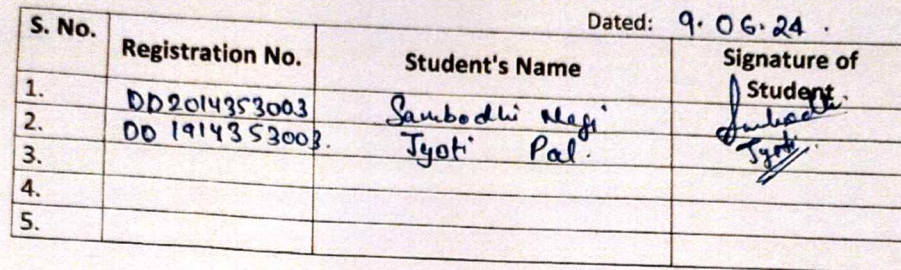 Dated: 9.06.24.
S. No. Registration No. Student's Name Signature of Student
1. DD2014353003 Sambodhi Nagi Sambodhi
2. DD1914353003. Jyoti Pal. Jyoti
3.
4.
5.